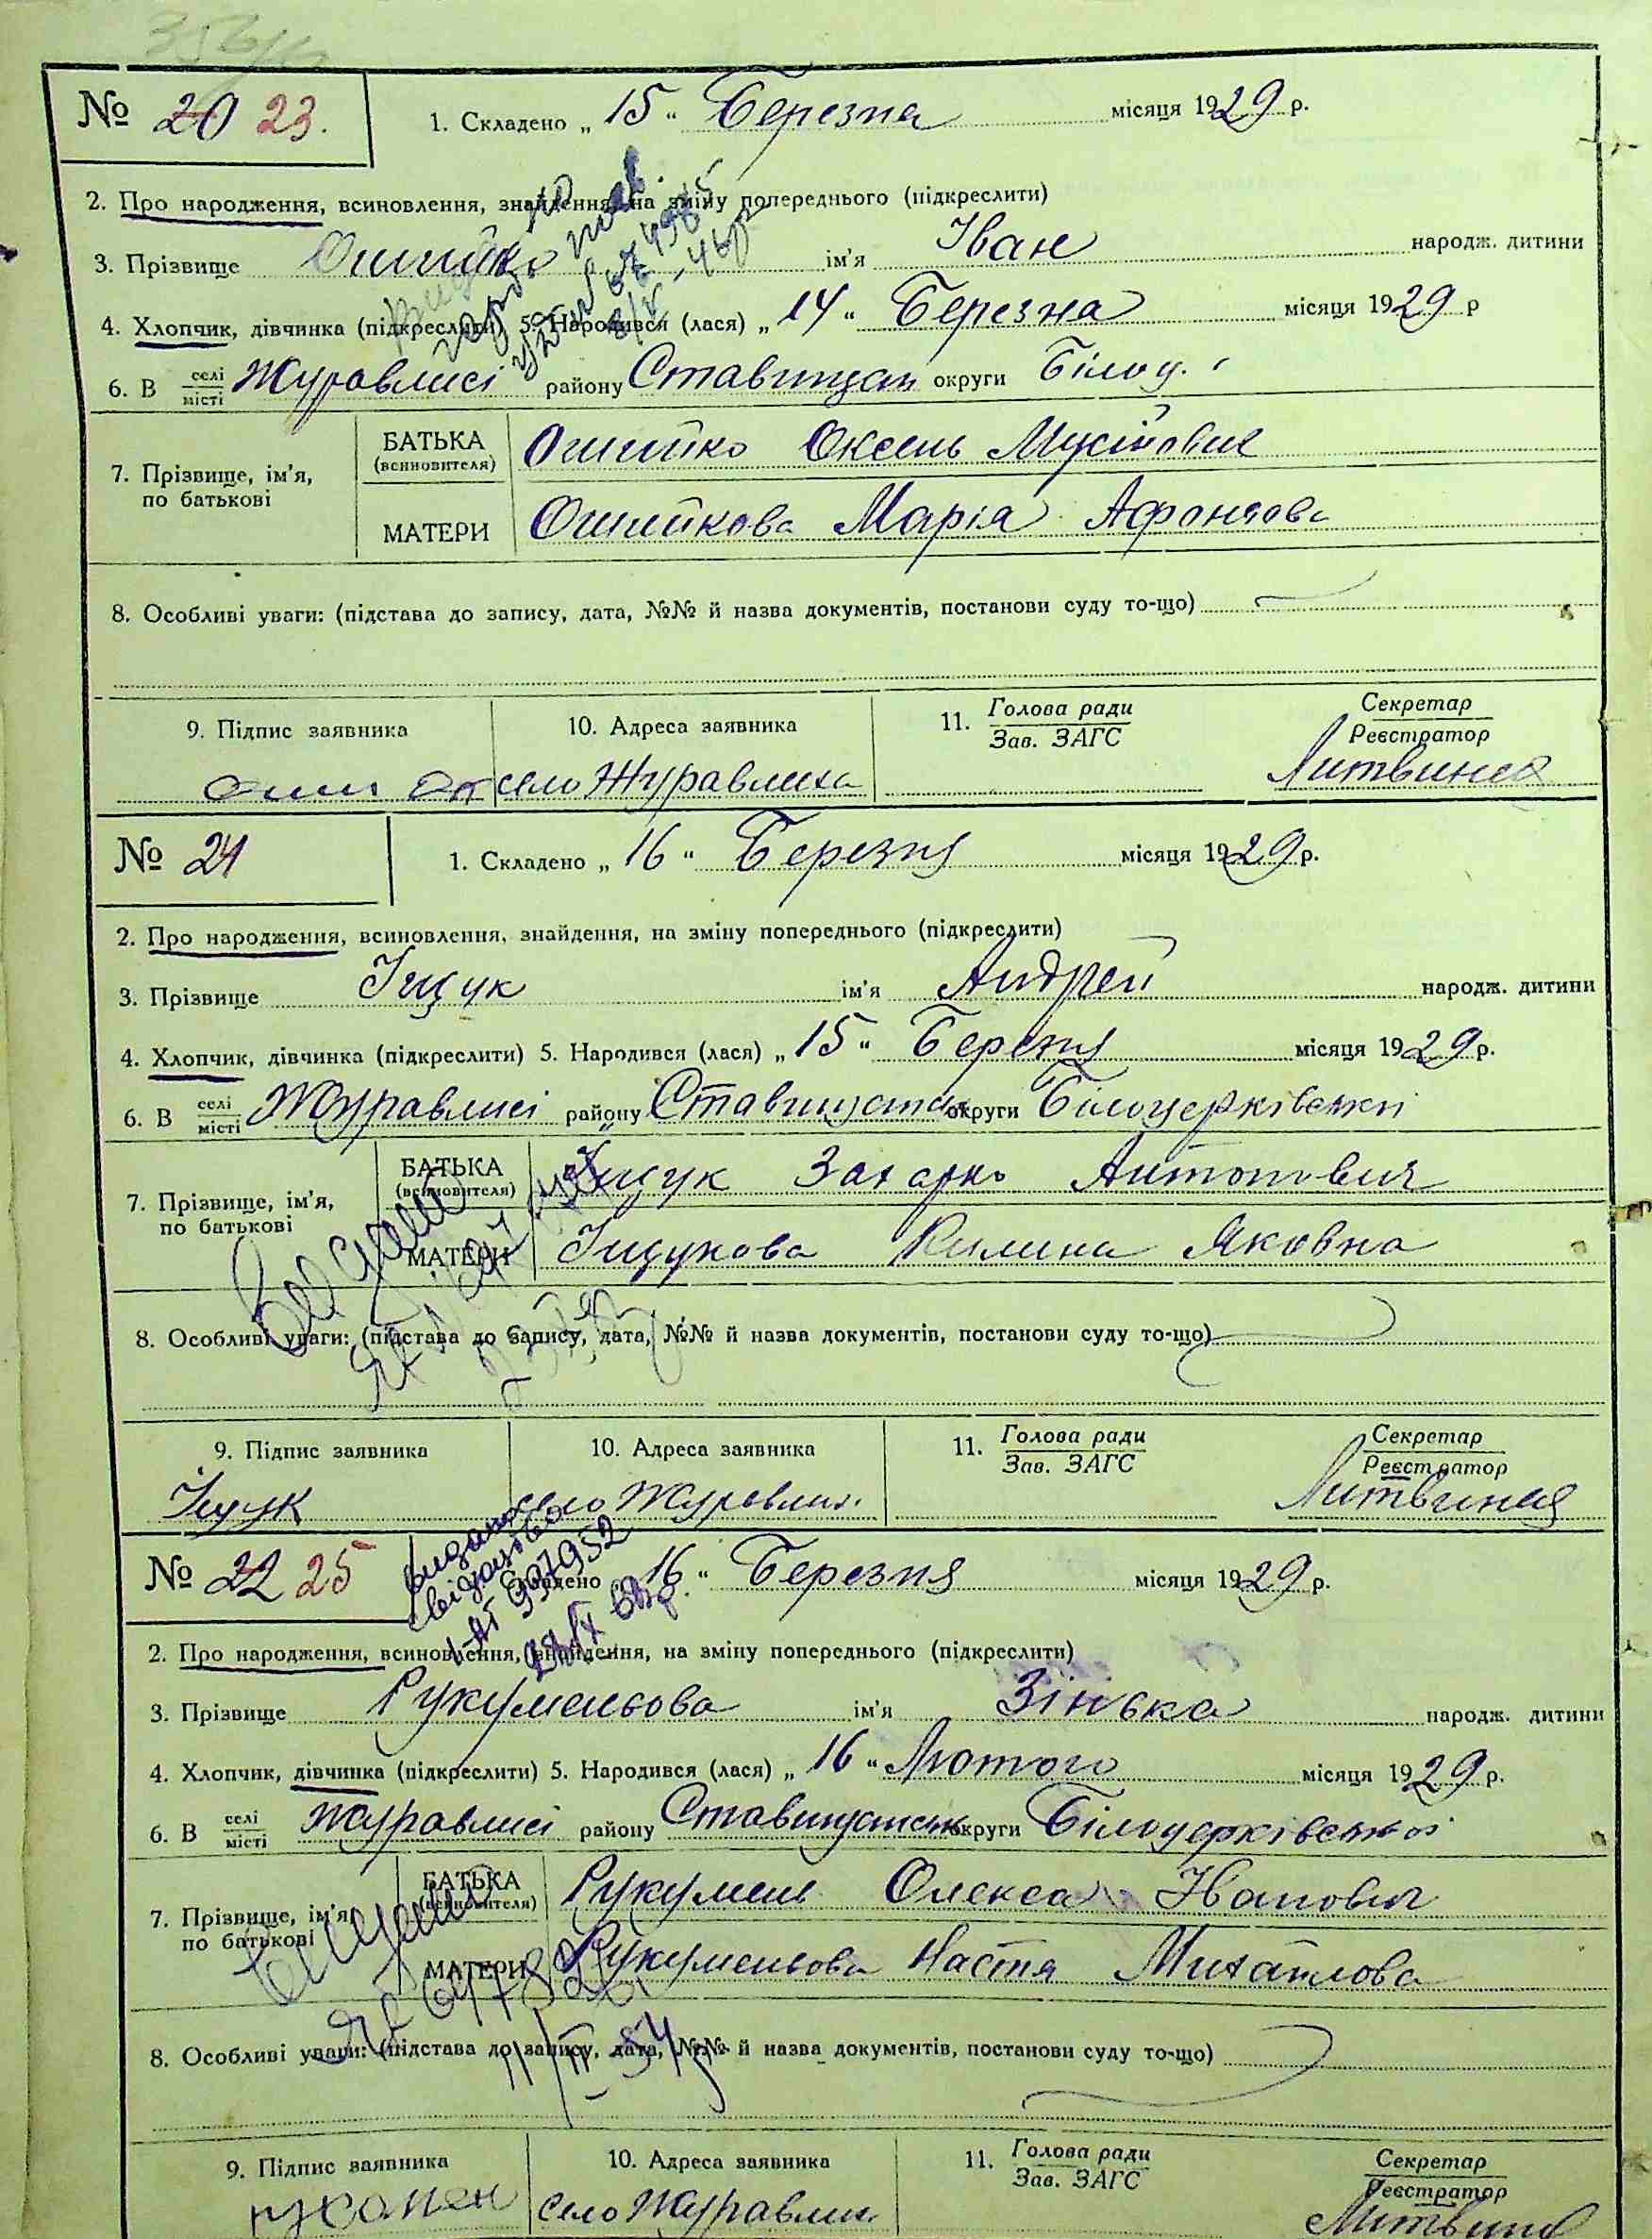 № 20 23.
1. Складено „ 15 “ Березня місяця 1929 р.
2. Про народження, всиновлення, знайдення, на зміну попереднього (підкреслити)
3. Прізвище Ошийко ім'я Іван народж. дитини
4. Хлопчик, дівчинка (підкреслити) 5. Народився (лася) „ 14 “ Березня місяця 1929 р
6. В селі/місті Журавлисі району Ставищан округи Білоц.
7. Прізвище, ім'я, по батькові
БАТЬКА (всиновителя) Ошийко Оксень Мусійович
МАТЕРИ Ошийкова Марія
8. Особливі уваги: (підстава до запису, дата, №№ й назва документів, постанови суду то-що)
9. Підпис заявника 10. Адреса заявника 11. Голова ради/Зав. ЗАГС Секретар/Реєстратор
село Журавлиха
№ 24
1. Складено „ 16 “ Березня місяця 1929 р.
2. Про народження, всиновлення, знайдення, на зміну попереднього (підкреслити)
3. Прізвище Іщук ім'я Андрей народж. дитини
4. Хлопчик, дівчинка (підкреслити) 5. Народився (лася) „ 15 “ Березня місяця 1929 р.
6. В селі/місті Журавлисі району округи Білоцерківської
7. Прізвище, ім'я, по батькові
БАТЬКА (всиновителя) Іщук Захарко Антонович
МАТЕРИ Іщукова Килина Яковна
8. Особливі уваги: (підстава до запису, дата, №№ й назва документів, постанови суду то-що)
9. Підпис заявника 10. Адреса заявника 11. Голова ради/Зав. ЗАГС Секретар/Реєстратор
Іщук село Журавлих.
№ 22 25
видано
свідоцтво
1. Складено „ 16 “ Березня місяця 1929 р.
2. Про народження, всиновлення, знайдення, на зміну попереднього (підкреслити)
3. Прізвище Рукуменьова ім'я Зінька народж. дитини
4. Хлопчик, дівчинка (підкреслити) 5. Народився (лася) „ 16 “ Лютого місяця 1929 р.
6. В селі/місті Журавлисі району округи Білоцерківської
7. Прізвище, ім'я, по батькові
БАТЬКА (всиновителя) Рукумень Олекса Іванович
МАТЕРИ Рукуменьова Настя Михайлова
8. Особливі уваги: (підстава до запису, дата, №№ й назва документів, постанови суду то-що)
9. Підпис заявника 10. Адреса заявника 11. Голова ради/Зав. ЗАГС Секретар/Реєстратор
село Журавлих.